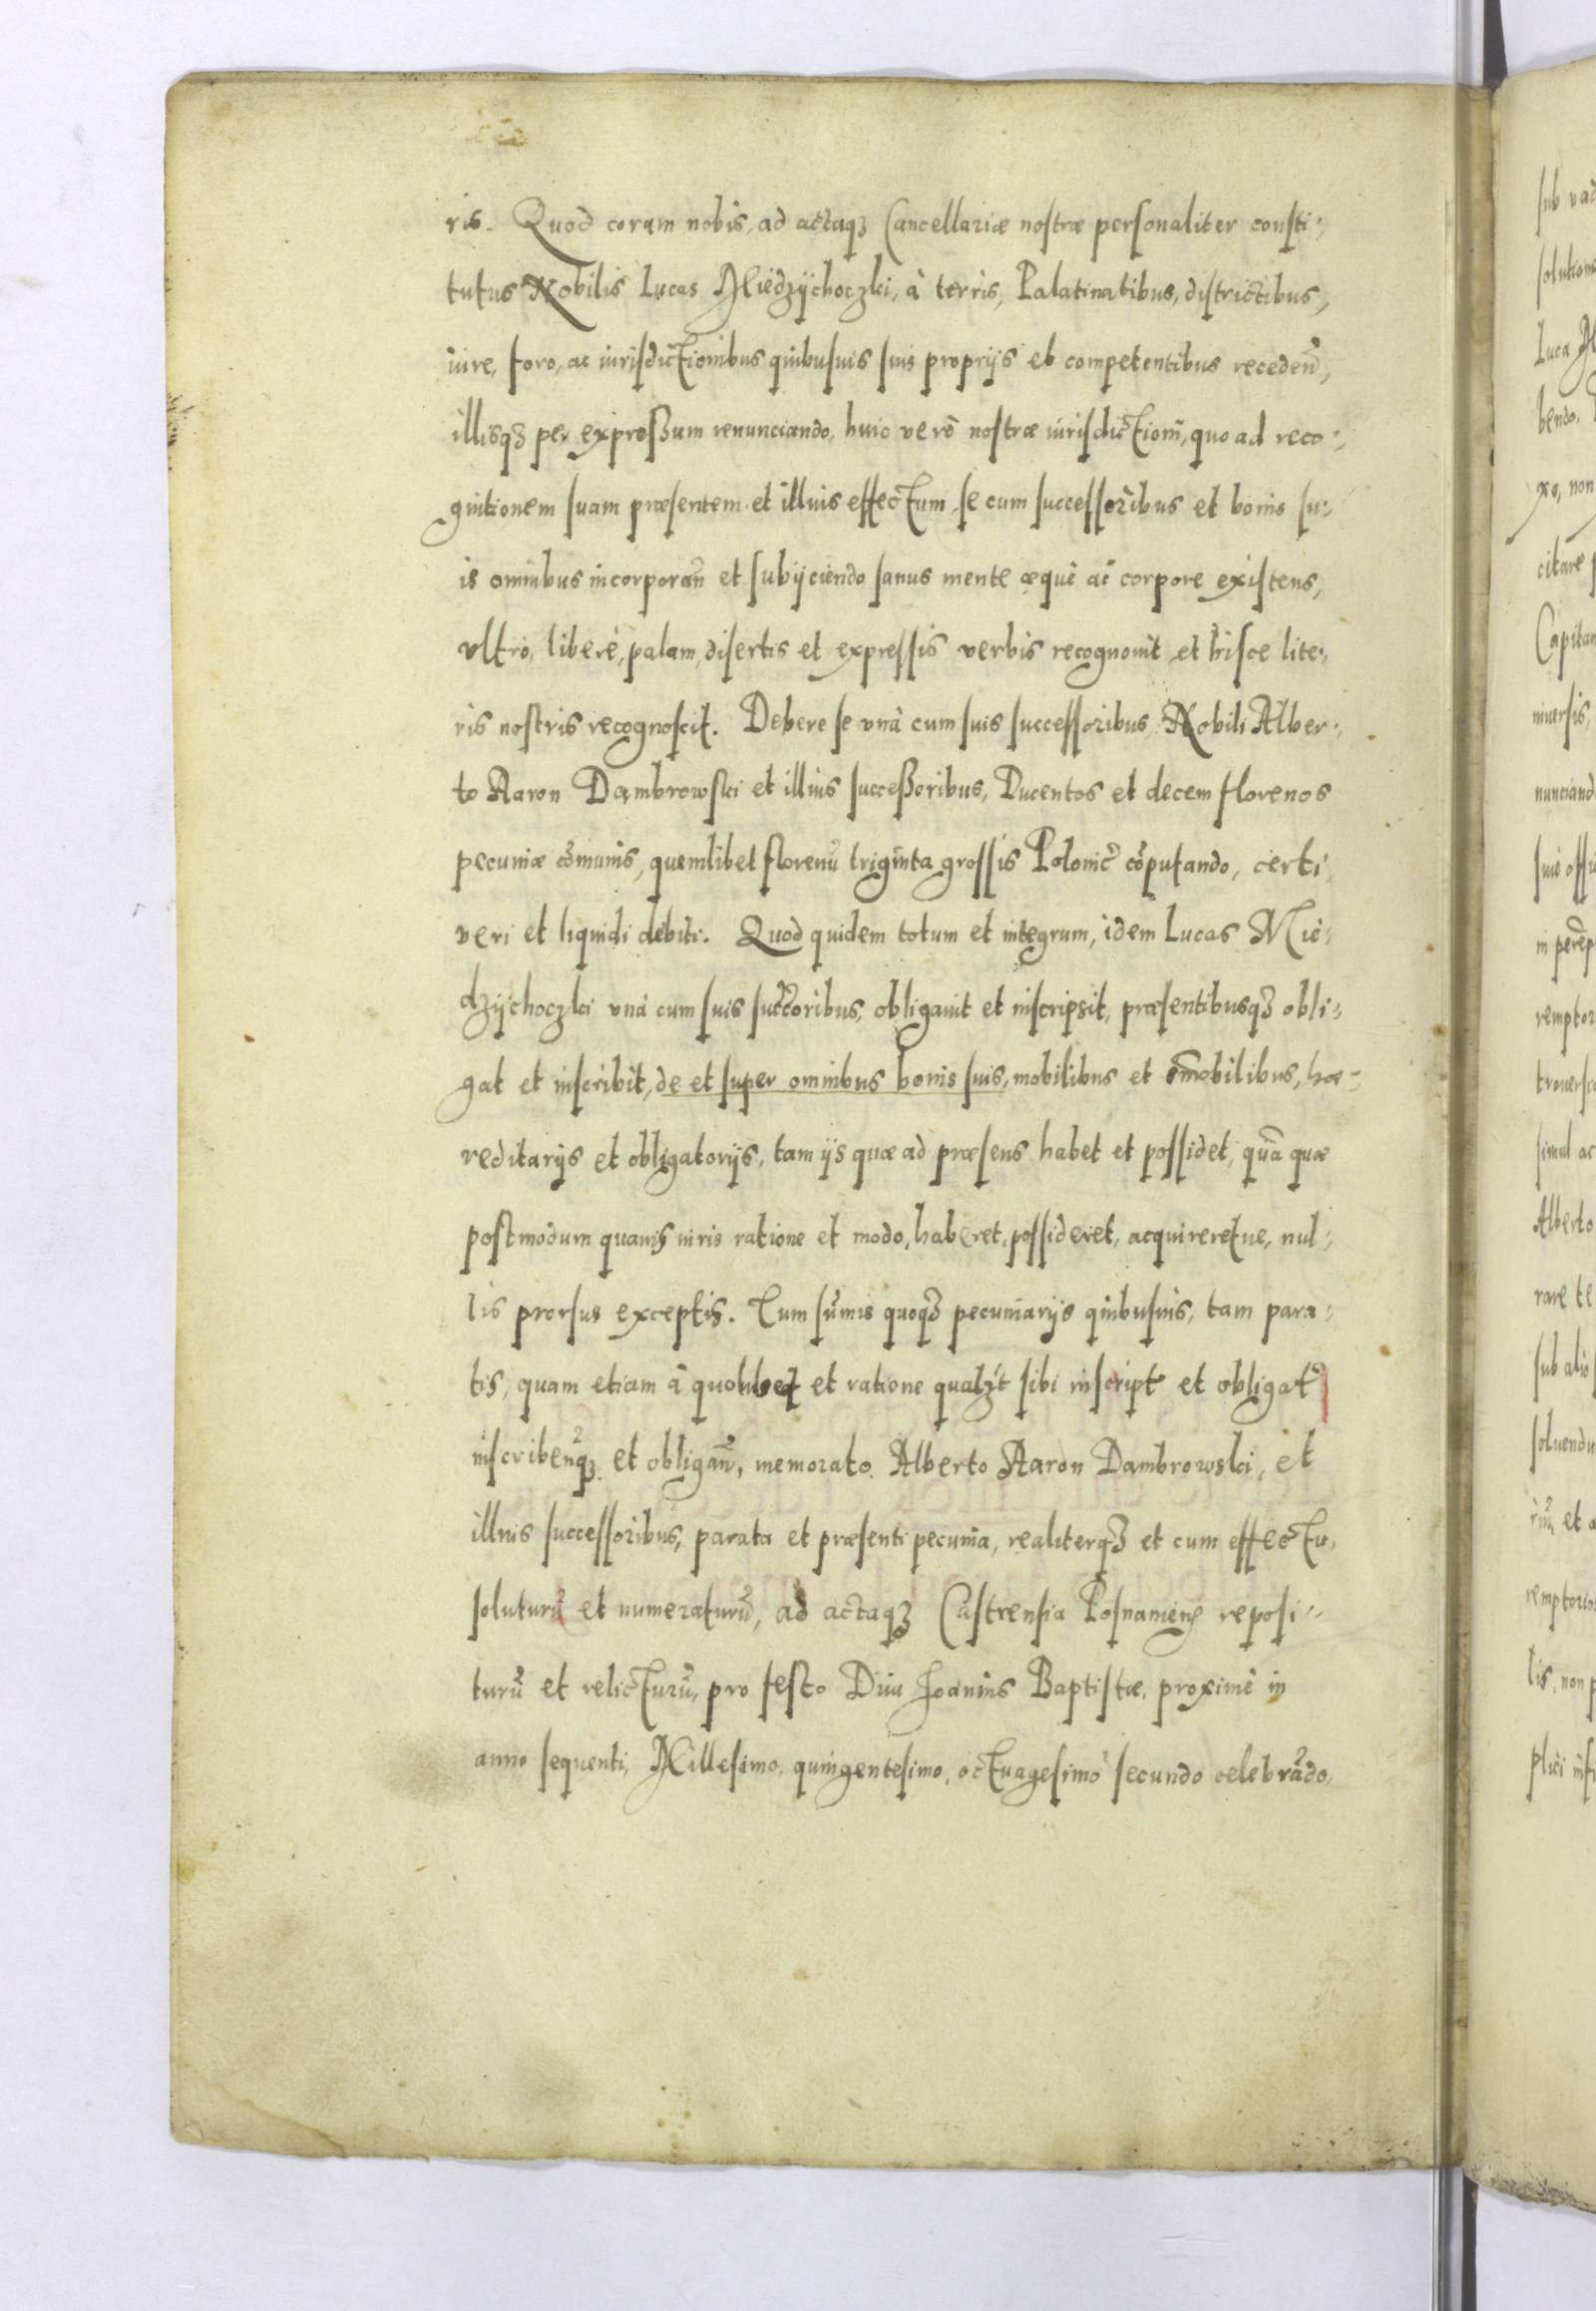 ris. Quod coram nobis, ad actaqȝ Cancellariæ nostræ personaliter consti:,
tutus Nobilis Lucas Miedzÿchoczki, à terris, Palatinatibus, districtibus,
iure, foro, ac iurisdictionibus quibusuis suis proprijs et competentibus recedeñ,
illisqȝ per expreßum renunciando, huic verò nostræ iurisdictioni, quo ad reco:,
gnitionem suam præsentem et illius effectum, se cum successoribus et bonis su:,
is omnibus incorporañ et subijciendo sanus mente æquè ac corpore existens,
vltrò, liberè, palam, disertis et expressis verbis recognouit et hisce lite:,
ris nostris recognoscit. Debere se vnà cum suis successoribus Nobili Alber:,
to Aaron Dambrowski et illius succeßoribus, Ducentos et decem florenos
pecuniæ cõmunis, quemlibet florenũ triginta grossis Polonic̃ cõputando, certi,
veri et liquidi debiti. Quod quidem totum et integrum, idem Lucas Mie:,
dzÿchoczki vnà cum suis succ̃oribus, obligauit et inscripsit, præsentibusqȝ obli:,
gat et inscribit, de et super omnibus bonis suis, mobilibus et im̃obilibus, hæ:,
reditarijs et obligatorijs, tam ijs quæ ad præsens habet et possidet, quã quæ
postmodum quauis iuris ratione et modo, haberet, possideret, acquireretue, nul:,
lis prorsus exceptis. Tum sum̃is quoqȝ pecuniarijs quibusuis, tam para:,
tis, quam etiam à quolibet et ratione qualȝt sibi inscript̃ et obligat̃
inscribeñqȝ et obligañ, memorato Alberto Aaron Dambrowski, et
illius successoribus, parata et præsenti pecunia, realiterqȝ et cum effectu,
soluturũ et numeraturũ, ad actaqȝ Castrensia Posnanieñ reposi:,
turũ et relicturũ, pro festo Diui Ioannis Baptistæ, proximè in
anno sequenti, Millesimo, quingentesimo, octuagesimo secundo celebrãdo,
sub
Luca
bendo.
xo, non
citare
niuersis,
in
simul ac
Alberto
rare
sub alio
et
lis, non
plici